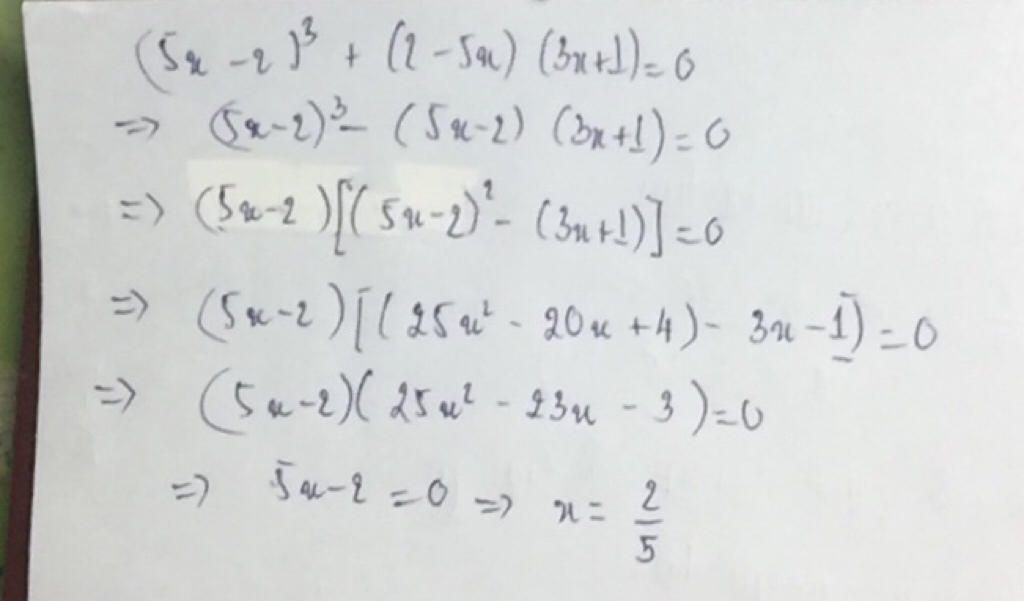 (5x - 2)³ + (2 - 5x) (3x+1) = 0
=> (5x-2)³ - (5x-2) (3x+1) = 0
=> (5x-2)[(5x-2)² - (3x+1)] = 0
=> (5x-2)[(25x² - 20x + 4) - 3x - 1) = 0
=> (5x-2)(25x² - 23x - 3) = 0
=> 5x-2 = 0 => x = 2/5